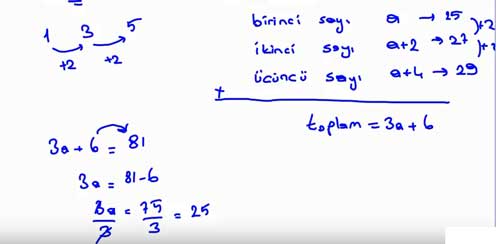 1 3 5
+2 +2
birinci sayı a → 25
ikinci sayı a+2 → 27
üçüncü sayı a+4 → 29
+
toplam = 3a + 6
3a + 6 = 81
3a = 81-6
3a/3 = 75/3 = 25